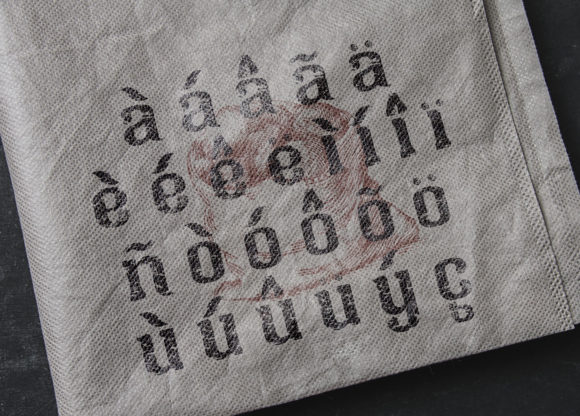 à á â ã ä
è é ê e ì í î ï
ñ ò ó ô õ ö
ù ú û u ý ç